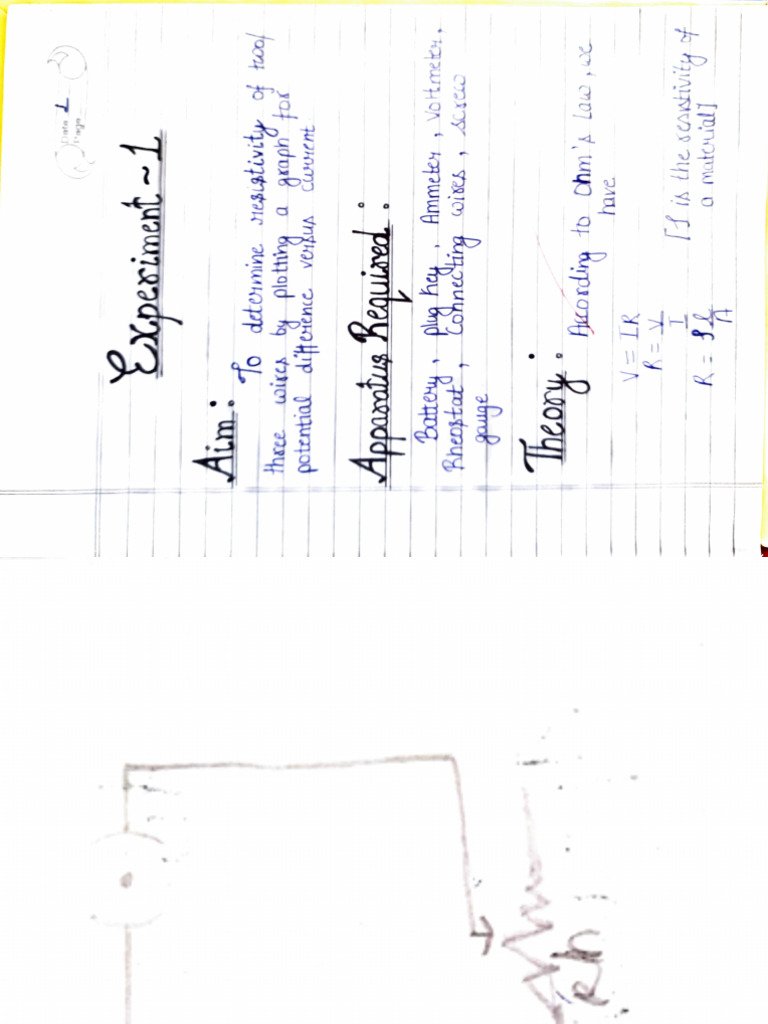 Date
Page 1
Experiment ~ 1
Aim : To determine resistivity of two/
three wires by plotting a graph for
potential difference versus current.
Apparatus Required :
Battery, plug key, Ammeter, Voltmeter,
Rheostat, Connecting wires, screw
gauge
Theory : According to Ohm's Law, we
have
V = IR
R = V/I
R = ρl/A [ρ is the resistivity of
a material]
Rh